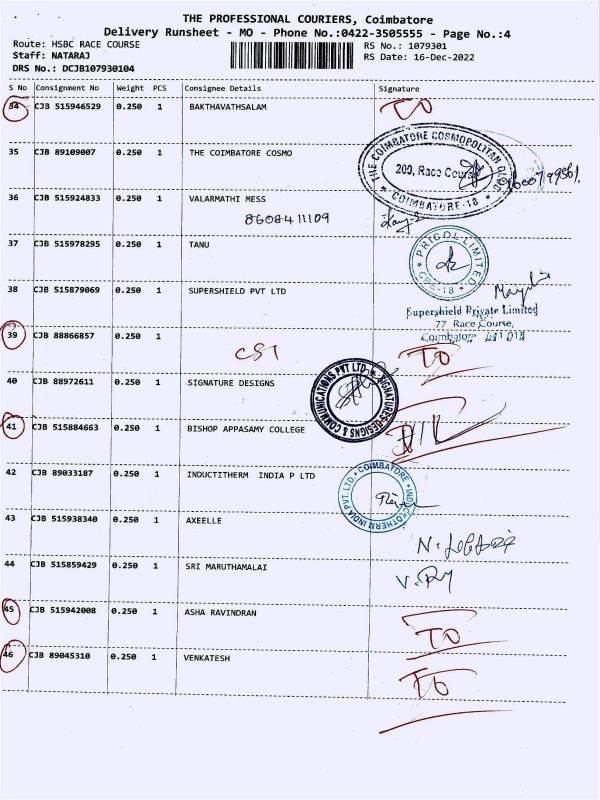 THE PROFESSIONAL COURIERS, Coimbatore
Delivery Runsheet - MO - Phone No.:0422-3505555 - Page No.:4
Route: HSBC RACE COURSE RS No.: 1079301
Staff: NATARAJ RS Date: 16-Dec-2022
DRS No.: DCJB107930104
S No Consignment No Weight PCS Consignee Details Signature
34 CJB 515946529 0.250 1 BAKTHAVATHSALAM TO
35 CJB 89109007 0.250 1 THE COIMBATORE COSMO
THE COIMBATORE COSMOPOLITAN CLUB
200, Race Course
COIMBATORE-18
36 CJB 515924833 0.250 1 VALARMATHI MESS
8608411109
37 CJB 515978295 0.250 1 TANU
PRICOL LIMITED
CBE-18
38 CJB 515879069 0.250 1 SUPERSHIELD PVT LTD
Supershield Private Limited
77 Race Course,
Coimbatore 641 018
39 CJB 88866857 0.250 1 TO
CST
40 CJB 88972611 0.250 1 SIGNATURE DESIGNS
SIGNATURE DESIGNS & COMMUNICATIONS PVT LTD
41 CJB 515884663 0.250 1 BISHOP APPASAMY COLLEGE
42 CJB 89033187 0.250 1 INDUCTITHERM INDIA P LTD
INDUCTOTHERM INDIA PVT. LTD.
COIMBATORE
43 CJB 515938340 0.250 1 AXEELLE
44 CJB 515859429 0.250 1 SRI MARUTHAMALAI
45 CJB 515942008 0.250 1 ASHA RAVINDRAN TO
46 CJB 89045310 0.250 1 VENKATESH TO